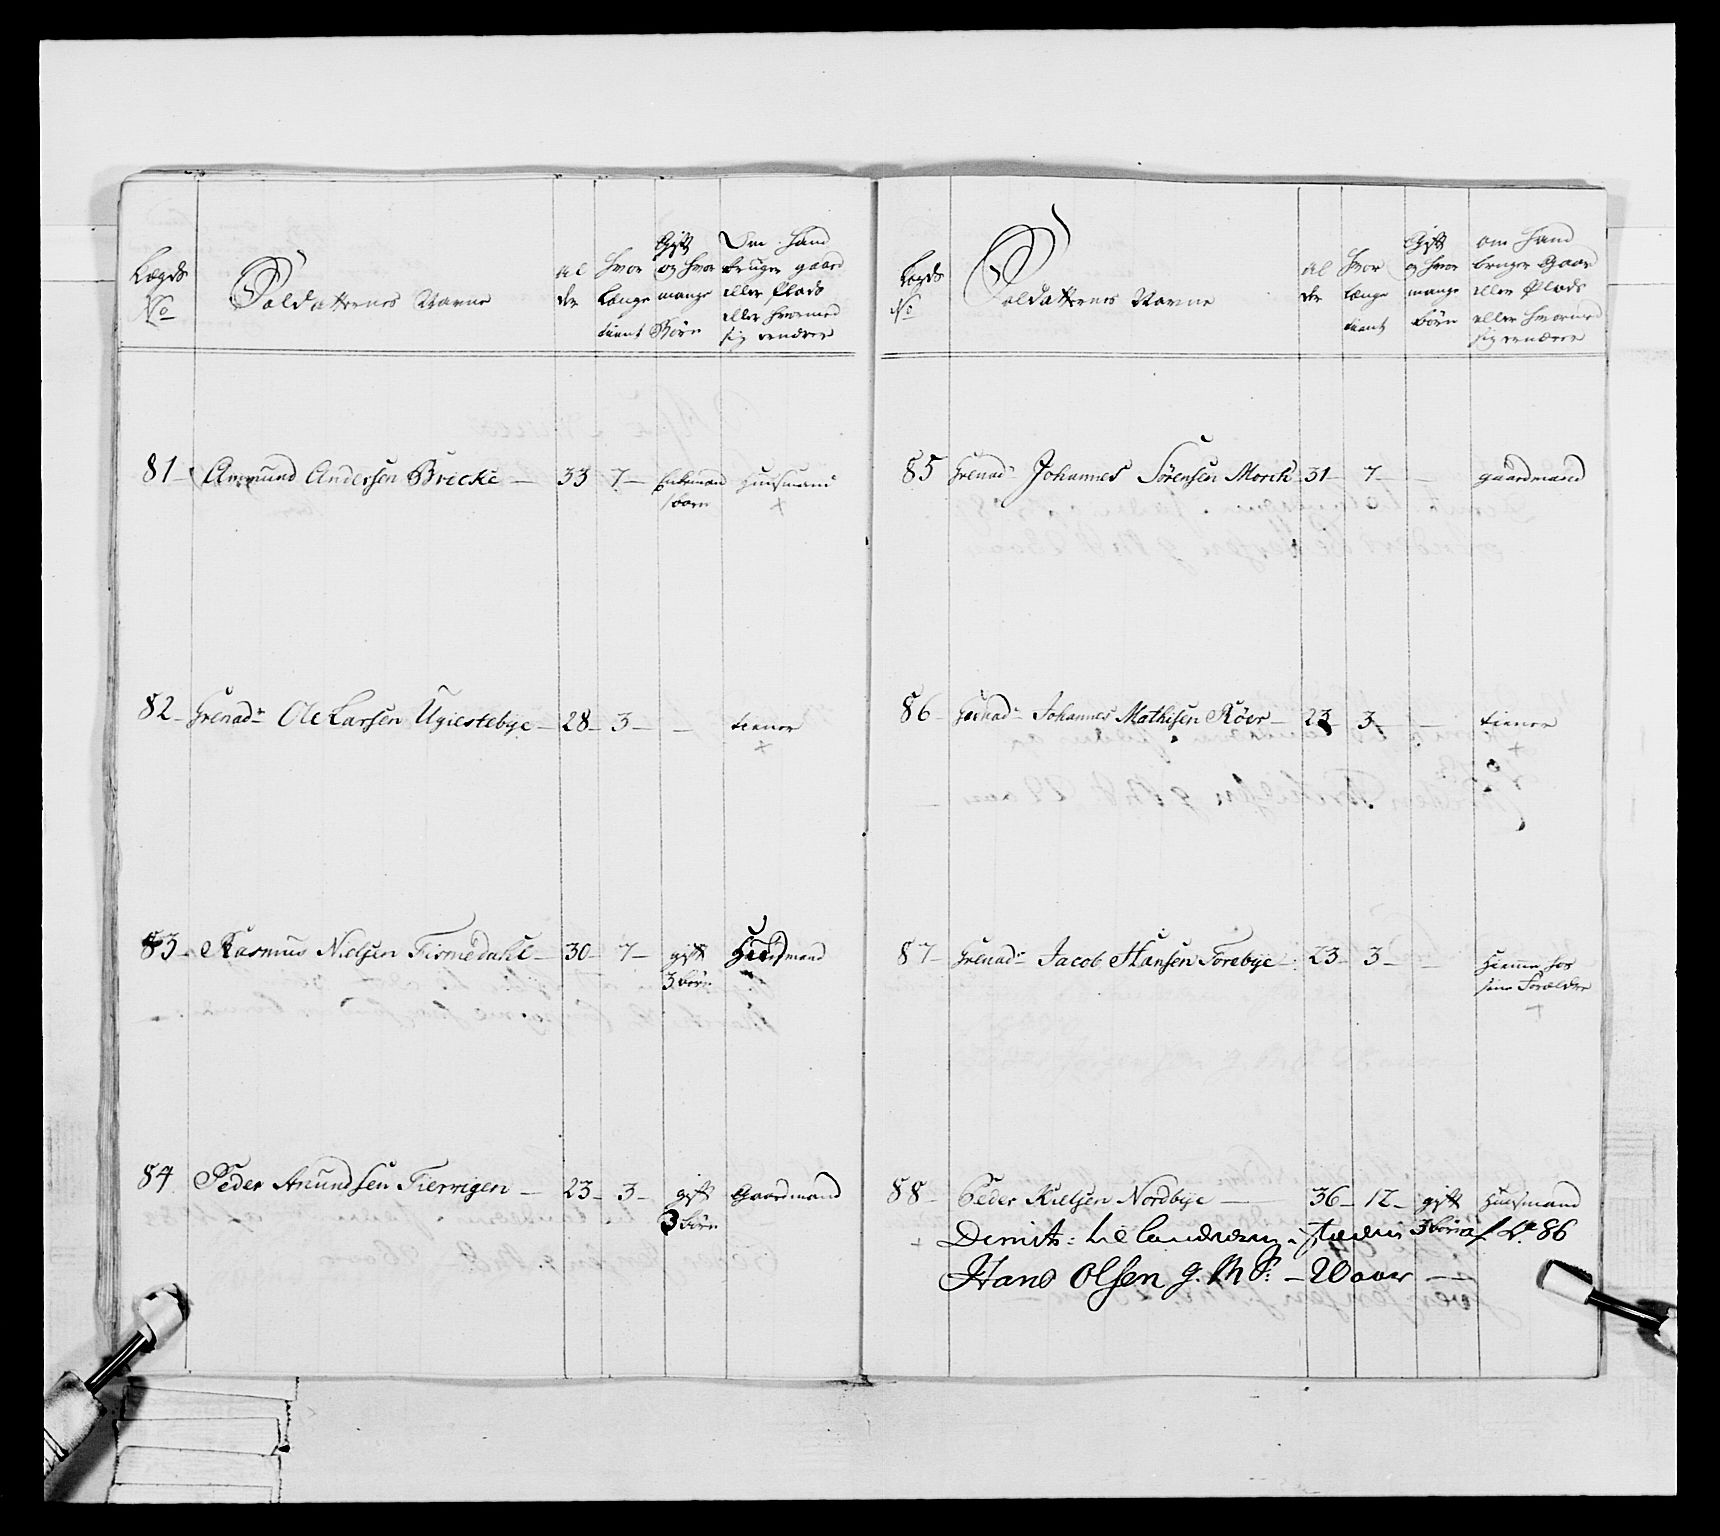 Lægds No
Soldatternes Navne
al der
hvor længe tient
Gift og hvor mange Börn
Om hand bruger gaard eller Plads eller hvormed sig ernærer
81 - Ammund Andersen Bricke — 33 7 — Enkemand 1 barn Huusmand +
82 - Grenadr Ole Larsen Ugiestebye — 28 — 3 — — tiener +
83 - Rasmus Nielsen Tismedahl — 30 — 7 — gift 3 börn Huusmand
84 Peder Amundsen Tiernigen — 23 — 3 — gift 3 börn Gaardmand
Lægds No
Soldatternes Navne
al der
hvor længe tient
Gift og hvor mange börn
om hand bruger Gaard eller Plads eller hvormed sig ernærer
85 Grenadr Johannes Sörensen Morck 31 — 7 — — gaardmand
86 - Grenadr Johannes Mathisen Röer — 23 — 3 — — tiener +
87 - Grenadr Jacob Hansen Torebye — 23 — 3 — — hiemme hos sine Forældre +
88 - Peder Nielsen Nordbye — 36 — 12 — gift 3 börn Huusmand
+ Demit: til landværn i steden af No 86
Hans Olsen g. M S: — 20 aar —